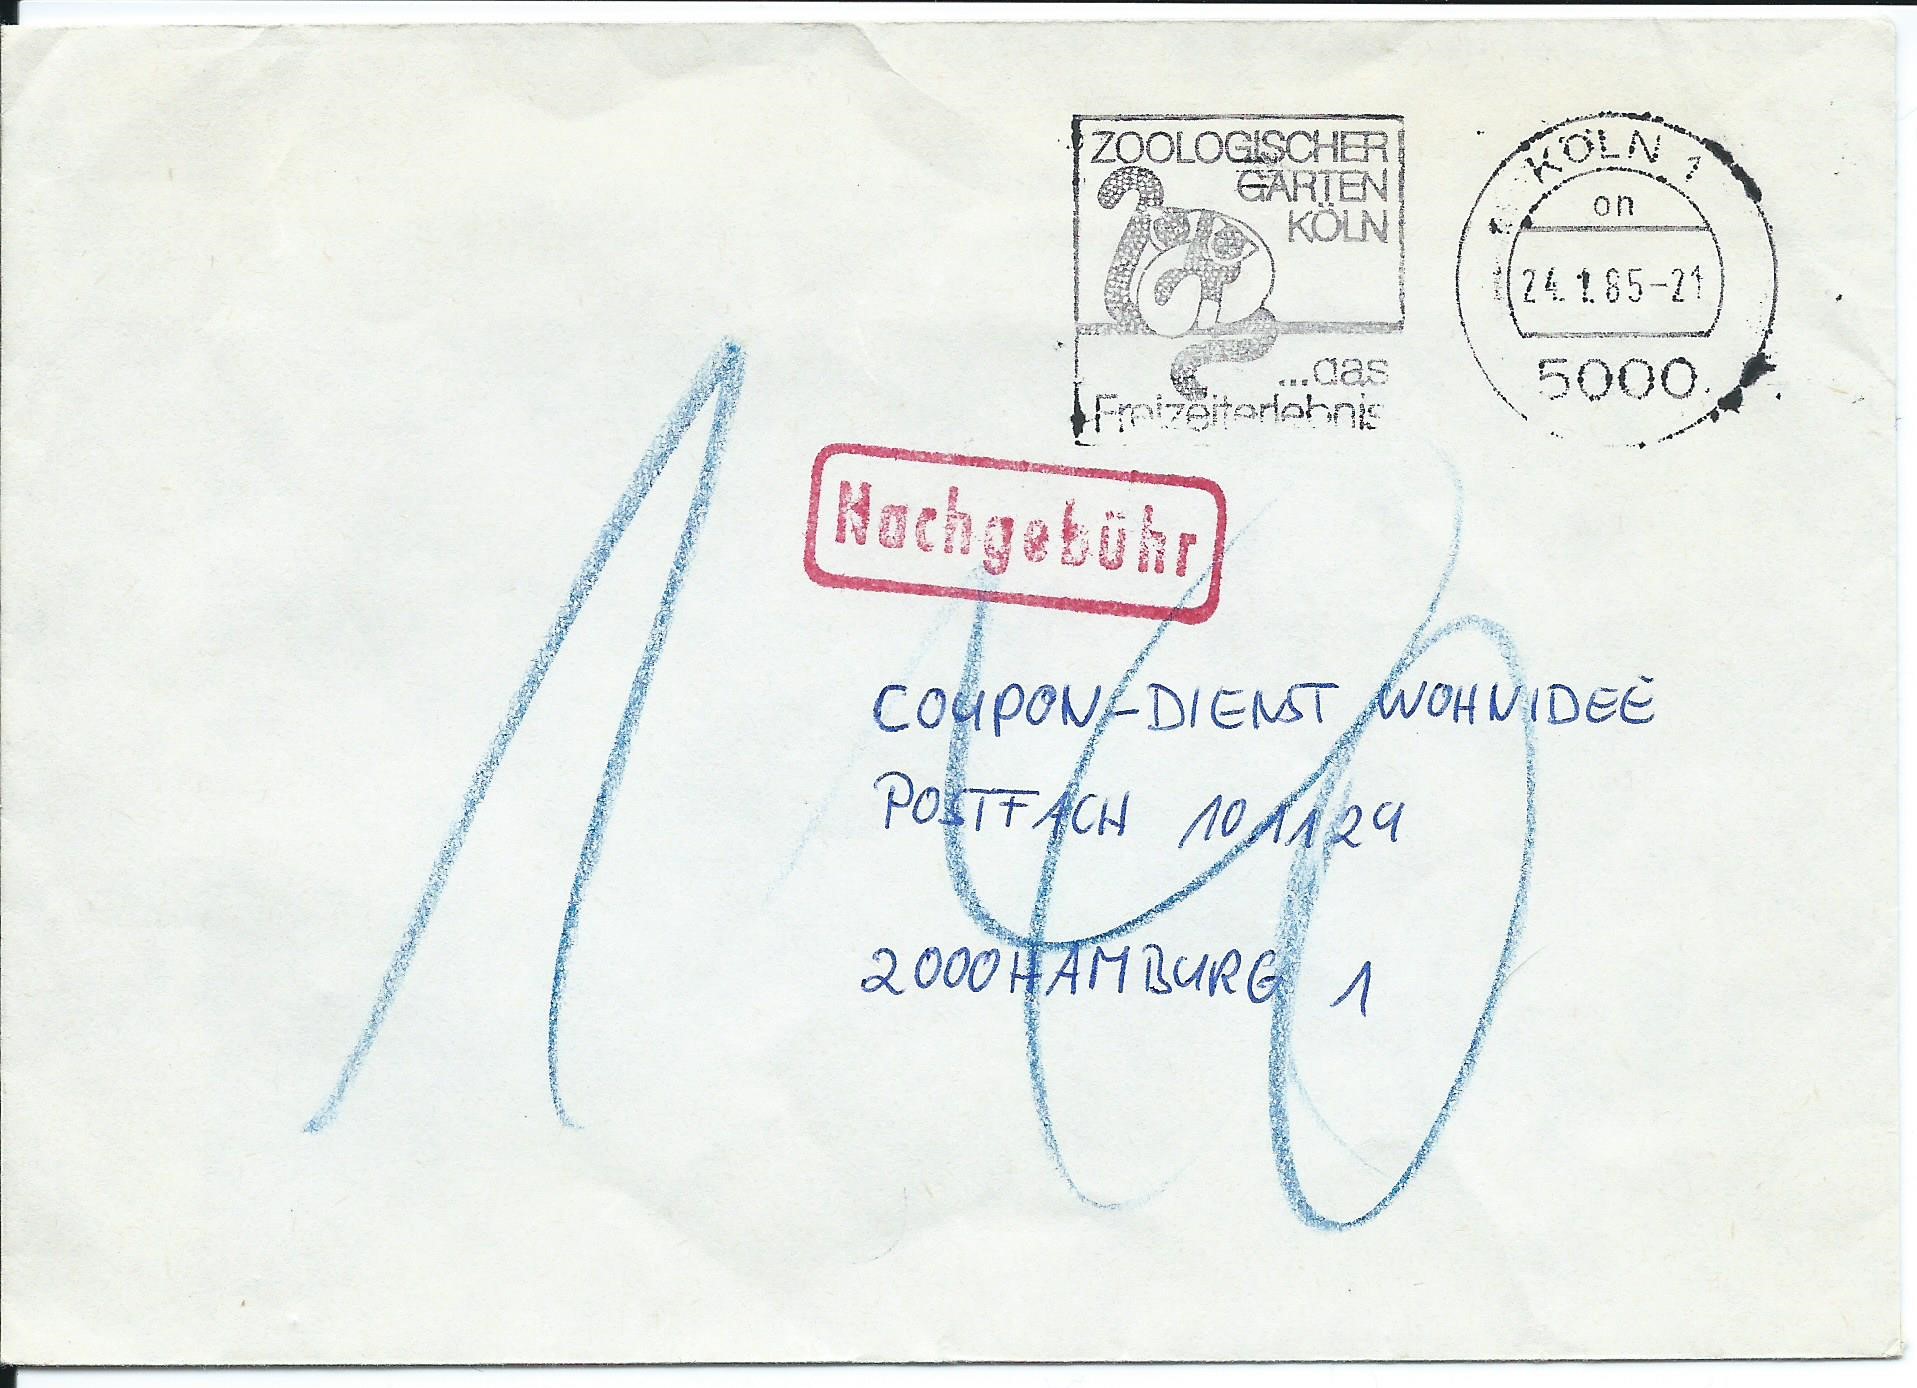 ZOOLOGISCHER
GARTEN
KÖLN
...das
Freizeiterlebnis
KÖLN 1
on
24.1.85-21
5000
Nachgebühr
COUPON-DIENST WOHNIDEE
POSTFACH 101129
2000 HAMBURG 1